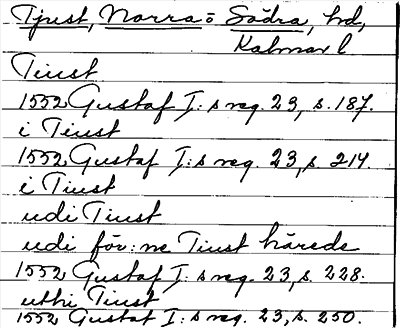 Tjust, Norra o Södra, hd,
Kalmar l
Tiust
1552 Gustaf I:s reg. 23, s. 187.
i Tiust
1552 Gustaf I:s reg. 23, s. 214.
i Tiust
udi Tiust
udi för:ne Tiust härede
1552 Gustaf I:s reg. 23, s. 228.
uthi Tiust
1552 Gustaf I:s reg. 23, s. 250.